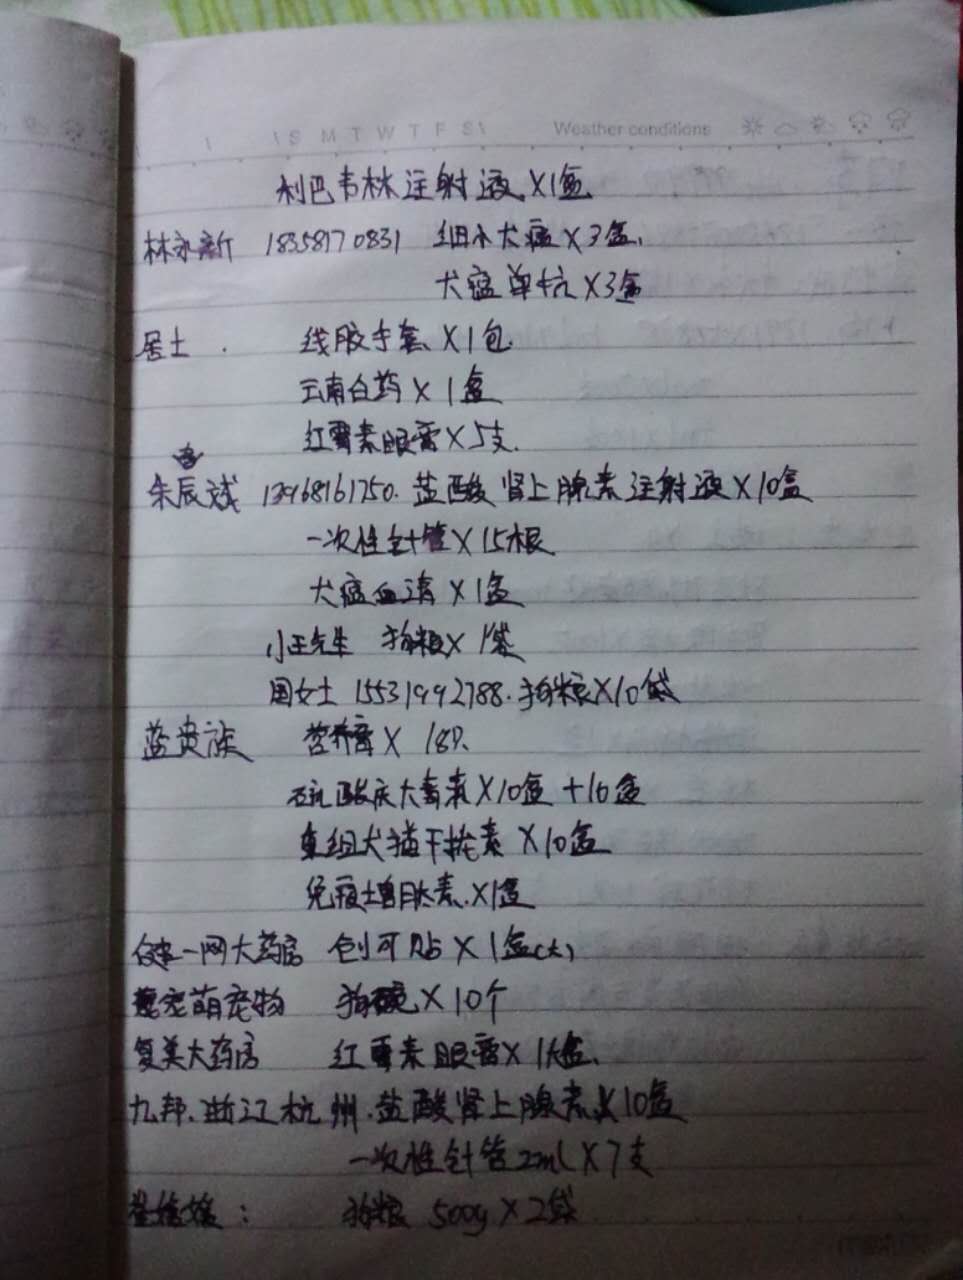 S M T W T F S Weather conditions
利巴韦林注射液X1盒
林永新 18358170831 细小犬瘟X3盒、
犬瘟单抗X3盒
居士. 线胶手套X1包.
云南白药X1盒
红霉素眼膏X5支.
朱辰斌 13968161750. 盐酸肾上腺素注射液X10盒
一次性针管X15根
犬瘟血清X1盒
小王先生 狗粮X1袋
周女士 15531992788. 狗粮X10袋
蓝贵族 营养膏X18只、
硫酸庆大霉素X10盒+10盒
重组犬猫干扰素X10盒
免疫增肽素.X1盒
健一网大药房 创可贴X1盒(大)
宠萌宠物 狗碗X10个
复美大药房 红霉素眼膏X1大盒、
九邦.浙江杭州.盐酸肾上腺素X10盒
一次性针管2mlX7支
狗粮 500gX2袋